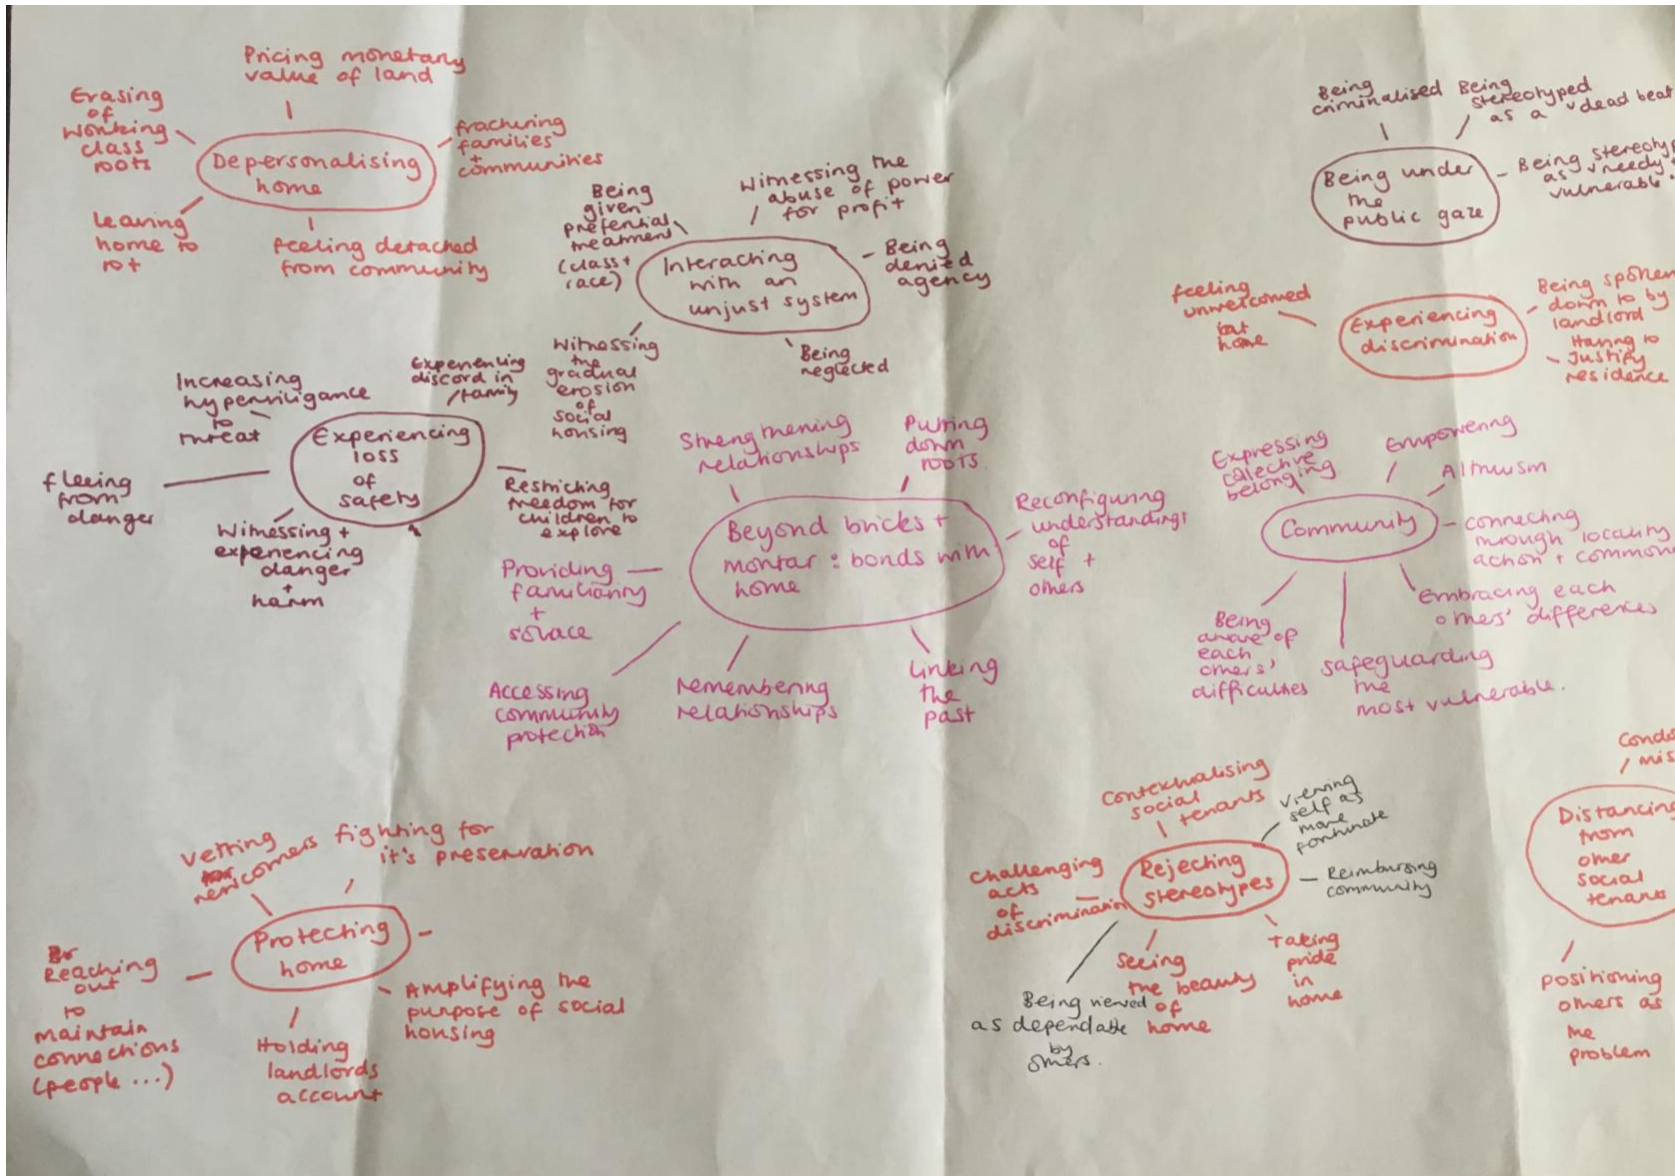 Pricing monetary
value of land
Erasing
of
working
class
roots
Depersonalising
home
fracturing
families
+
communities
leaving
home to
rot
feeling detached
from community
Being
given
prefential
treatment
(class +
race)
Witnessing the
abuse of power
for profit
Interacting
with an
unjust system
Being
denied
agency
Witnessing
the
gradual
erosion
of
social
housing
Being
neglected
Being
criminalised
Being
stereotyped
as a
dead beat
Being under
the
public gaze
Being
as needy
vulnerable
feeling
unwelcomed
at
home
Experiencing
discrimination
Being spoken
down to by
landlord
Having to
Justify
residence
Increasing
hyperviligance
to
threat
Experiencing
discord in
family
Experiencing
loss
of
safety
fleeing
from
danger
Witnessing +
experiencing
danger
+
harm
Restricting
freedom for
children to
explore
Strengthening
relationships
Putting
down
roots
Beyond bricks +
mortar : bonds with
home
Reconfiguring
understandings
of
self +
others
Providing
familiarity
+
solace
Accessing
community
protection
remembering
relationships
linking
the
past
Expressing
collective
belonging
Empowering
Altruism
Community
connecting
through locality
action +
Embracing each
others' differences
Being
aware of
each
others'
difficulties
safeguarding
the
most vulnerable.
vetting
newcomers
fighting for
it's preservation
Protecting
home
Reaching
out
to
maintain
connections
(people ...)
Holding
landlords
account
Amplifying the
purpose of social
housing
Contextualising
social
tenants
viewing
self as
more
fortunate
challenging
acts
of
discrimination
Rejecting
stereotypes
Reimbursing
community
Being viewed
as dependable
by
others.
Seeing
the beauty
of
home
Taking
pride
in
home
Distancing
from
other
social
tenants
positioning
others as
the
problem